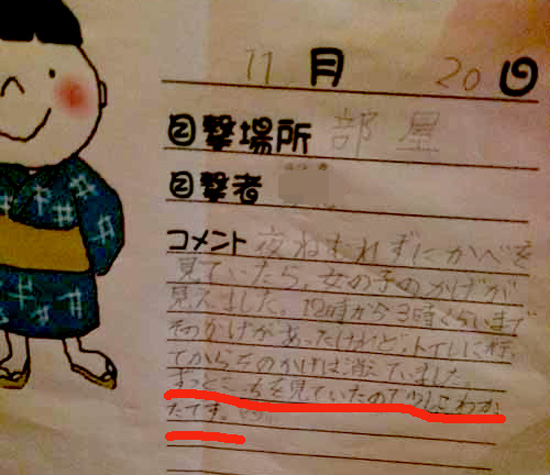 11月20日
目撃場所 部屋
目撃者
コメント 夜ねむれずにかべを
見ていたら、女の子のかげが
見えました。12時から3時くらいまで
そのかげがあったけれど、トイレに行っ
てからそのかげは消えていました。
ずっとこっちを見ていたので少しこわか
たです。